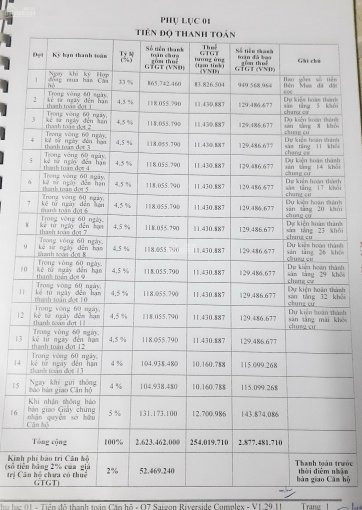 PHỤ LỤC 01
TIẾN ĐỘ THANH TOÁN
Đợt Kỳ hạn thanh toán Tỷ lệ (%) Số tiền thanh toán chưa gồm thuế GTGT (VNĐ) Thuế GTGT tương ứng (tạm tính) (VNĐ) Số tiền thanh toán đã bao gồm thuế GTGT (VNĐ) Ghi chú
1 Ngày khi ký Hợp đồng mua bán Căn hộ 33 % 865.742.460 83.826.504 949.568.964 Bao gồm số tiền Bên Mua đã đặt cọc
2 Trong vòng 60 ngày, kể từ ngày đến hạn thanh toán đợt 1 4,5 % 118.055.790 11.430.887 129.486.677 Dự kiến hoàn thành sàn tầng 5 khối chung cư
3 Trong vòng 60 ngày, kể từ ngày đến hạn thanh toán đợt 2 4,5 % 118.055.790 11.430.887 129.486.677 Dự kiến hoàn thành sàn tầng 8 khối chung cư
4 Trong vòng 60 ngày, kể từ ngày đến hạn thanh toán đợt 3 4,5 % 118.055.790 11.430.887 129.486.677 Dự kiến hoàn thành sàn tầng 11 khối chung cư
5 Trong vòng 60 ngày, kể từ ngày đến hạn thanh toán đợt 4 4,5 % 118.055.790 11.430.887 129.486.677 Dự kiến hoàn thành sàn tầng 14 khối chung cư
6 Trong vòng 60 ngày, kể từ ngày đến hạn thanh toán đợt 5 4,5 % 118.055.790 11.430.887 129.486.677 Dự kiến hoàn thành sàn tầng 17 khối chung cư
7 Trong vòng 60 ngày, kể từ ngày đến hạn thanh toán đợt 6 4,5 % 118.055.790 11.430.887 129.486.677 Dự kiến hoàn thành sàn tầng 20 khối chung cư
8 Trong vòng 60 ngày, kể từ ngày đến hạn thanh toán đợt 7 4,5 % 118.055.790 11.430.887 129.486.677 Dự kiến hoàn thành sàn tầng 23 khối chung cư
9 Trong vòng 60 ngày, kể từ ngày đến hạn thanh toán đợt 8 4,5 % 118.055.790 11.430.887 129.486.677 Dự kiến hoàn thành sàn tầng 26 khối chung cư
10 Trong vòng 60 ngày, kể từ ngày đến hạn thanh toán đợt 9 4,5 % 118.055.790 11.430.887 129.486.677 Dự kiến hoàn thành sàn tầng 29 khối chung cư
11 Trong vòng 60 ngày, kể từ ngày đến hạn thanh toán đợt 10 4,5 % 118.055.790 11.430.887 129.486.677 Dự kiến hoàn thành sàn tầng 32 khối chung cư
12 Trong vòng 60 ngày, kể từ ngày đến hạn thanh toán đợt 11 4,5 % 118.055.790 11.430.887 129.486.677 Dự kiến hoàn thành sàn tầng mái khối chung cư
13 Trong vòng 60 ngày, kể từ ngày đến hạn thanh toán đợt 12 4,5 % 118.055.790 11.430.887 129.486.677
14 Trong vòng 60 ngày, kể từ ngày đến hạn thanh toán đợt 13 4 % 104.938.480 10.160.788 115.099.268
15 Ngay khi gửi thông báo bàn giao Căn hộ 4 % 104.938.480 10.160.788 115.099.268
16 Khi nhận thông báo bàn giao Giấy chứng nhận quyền sở hữu Căn hộ 5 % 131.173.100 12.700.986 143.874.086
Tổng cộng 100% 2.623.462.000 254.019.710 2.877.481.710
Kinh phí bảo trì Căn hộ (số tiền bằng 2% của giá trị Căn hộ chưa có thuế GTGT) 2% 52.469.240 Thanh toán trước thời điểm nhận bàn giao Căn hộ
hụ lục 01 - Tiến độ thanh toán Căn hộ - Q7 Saigon Riverside Complex - V1.29.11 Trang 1